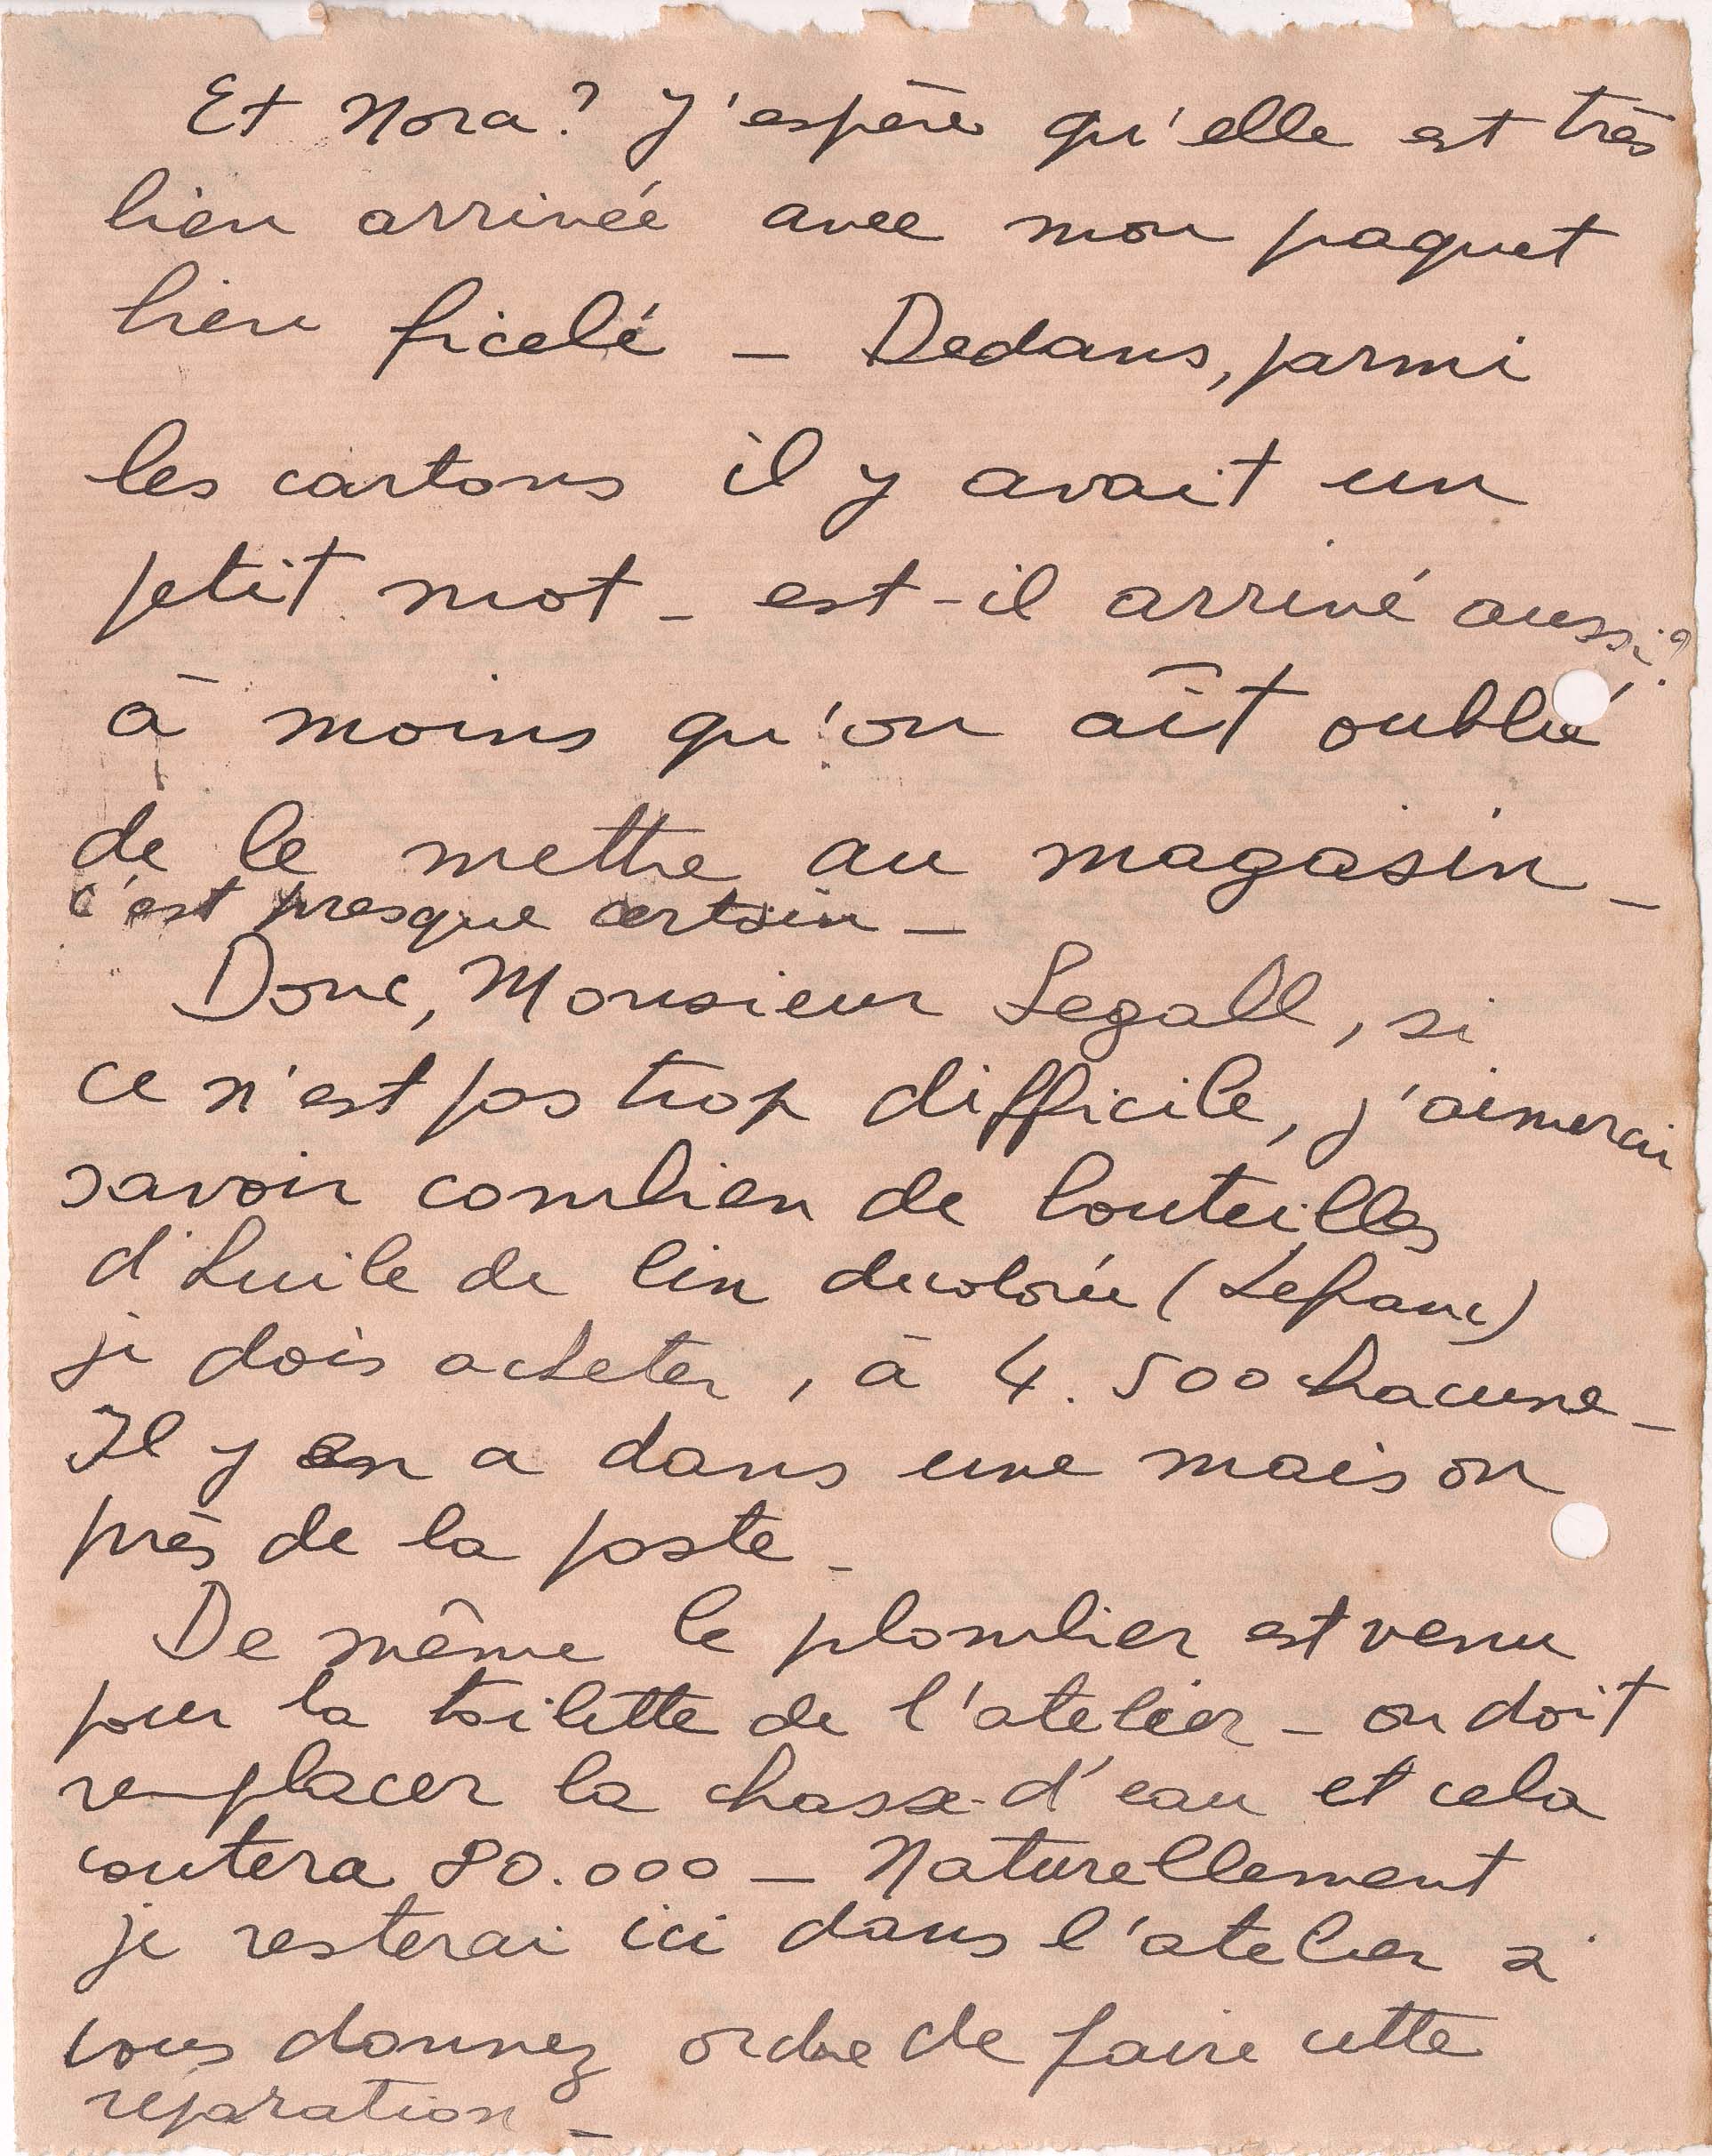 Et Nora? J'espère qu'elle est très
bien arrivée avec mon paquet
bien ficelé – Dedans, parmi
les cartons il y avait un
petit mot – est-il arrivé aussi?
à moins qu'on aît oublié
de le mettre au magasin –
c'est presque certain –
Donc, Monsieur Legall, si
ce n'est pas trop difficile, j'aimerai
savoir combien de bouteilles
d'huile de lin decolorée (Lefranc)
je dois acheter, à 4.500 chacune –
Il y en a dans une maison
près de la poste –
De même le plombier est venu
pour la toilette de l'atelier – on doit
remplacer la chasse-d'eau et cela
coutera 80.000 – Naturellement
je resterai ici dans l'atelier si
vous donnez ordre de faire cette
réparation –